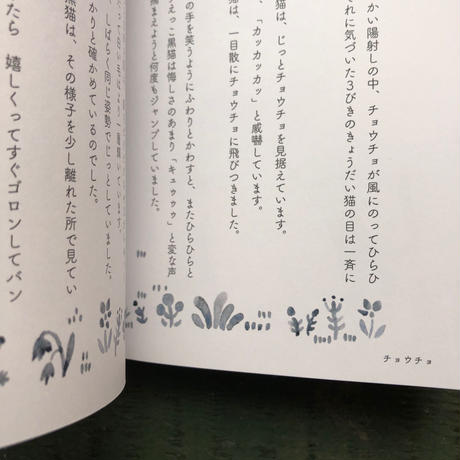 かい陽射しの中、チョウチョが風にのってひらひ
れに気づいた3びきのきょうだい猫の目は一斉に
猫は、じっとチョウチョを見据えています。
、「カッカッカッ」と威嚇しています。
猫は、一目散にチョウチョに飛びつきました。
の手を笑うようにふわりとかわすと、またひらひらと
えっこ黒猫は悔しさのあまり「キュゥゥゥ」と変な声
捕まえようと何度もジャンプしていました。
チョウチョ
って白い毛はより一層輝いています。
、しばらく同じ姿勢でじっとしていました。
かりと確かめているのでした。
黒猫は、その様子を少し離れた所で見てい
たら 嬉しくってすぐゴロンしてバン